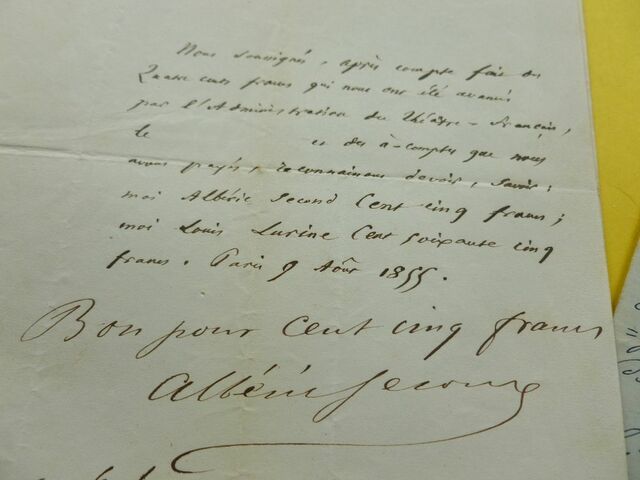 Nous soussignés, après compte fait des
Quatre cents francs qui nous ont été avancés
par l'Administration du Théâtre-Français,
le et des à-comptes que nous
avons payés, reconnaissons devoir, savoir:
moi Albéric Second Cent cinq francs;
moi Louis Lurine Cent soixante cinq
francs. Paris 9 Août 1855.
Bon pour cent cinq francs
Albéric Second